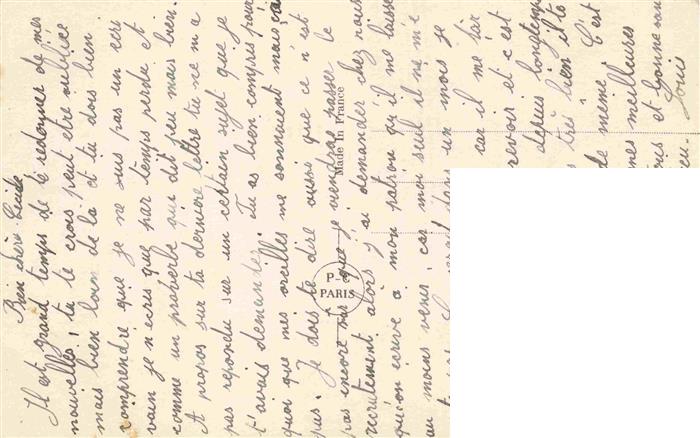 Bien chère Cécile
Il est grand temps de te redonner de mes
nouvelles, tu te crois peut être oubliée
mais bien loin de là et tu dois bien
comprendre que je ne suis pas un écri
vain je n'écris que par temps perdu et
comme un proverbe qui dit peu mais bien.
A propos sur ta dernière lettre tu ne m'a
pas repondu sur un certain sujet que je
t'avais demander. Tu as bien compris pour
quoi que mes oreilles me sonnuient mais
pas. Je dois te dire aussi que ce n'est
pas encore sûr que je viendrai passer le
recrutement alors j'ai demander chez nous
qu'on écrive a mon patron qu'il me laisse
au moins venir, car moi seul il ne me
un mois je
car il me tar
revoir et c'est
depuis longtemps
très bien il te
de même C'est
mes meilleures
et bonne
Louis
Made In France
P-c
PARIS